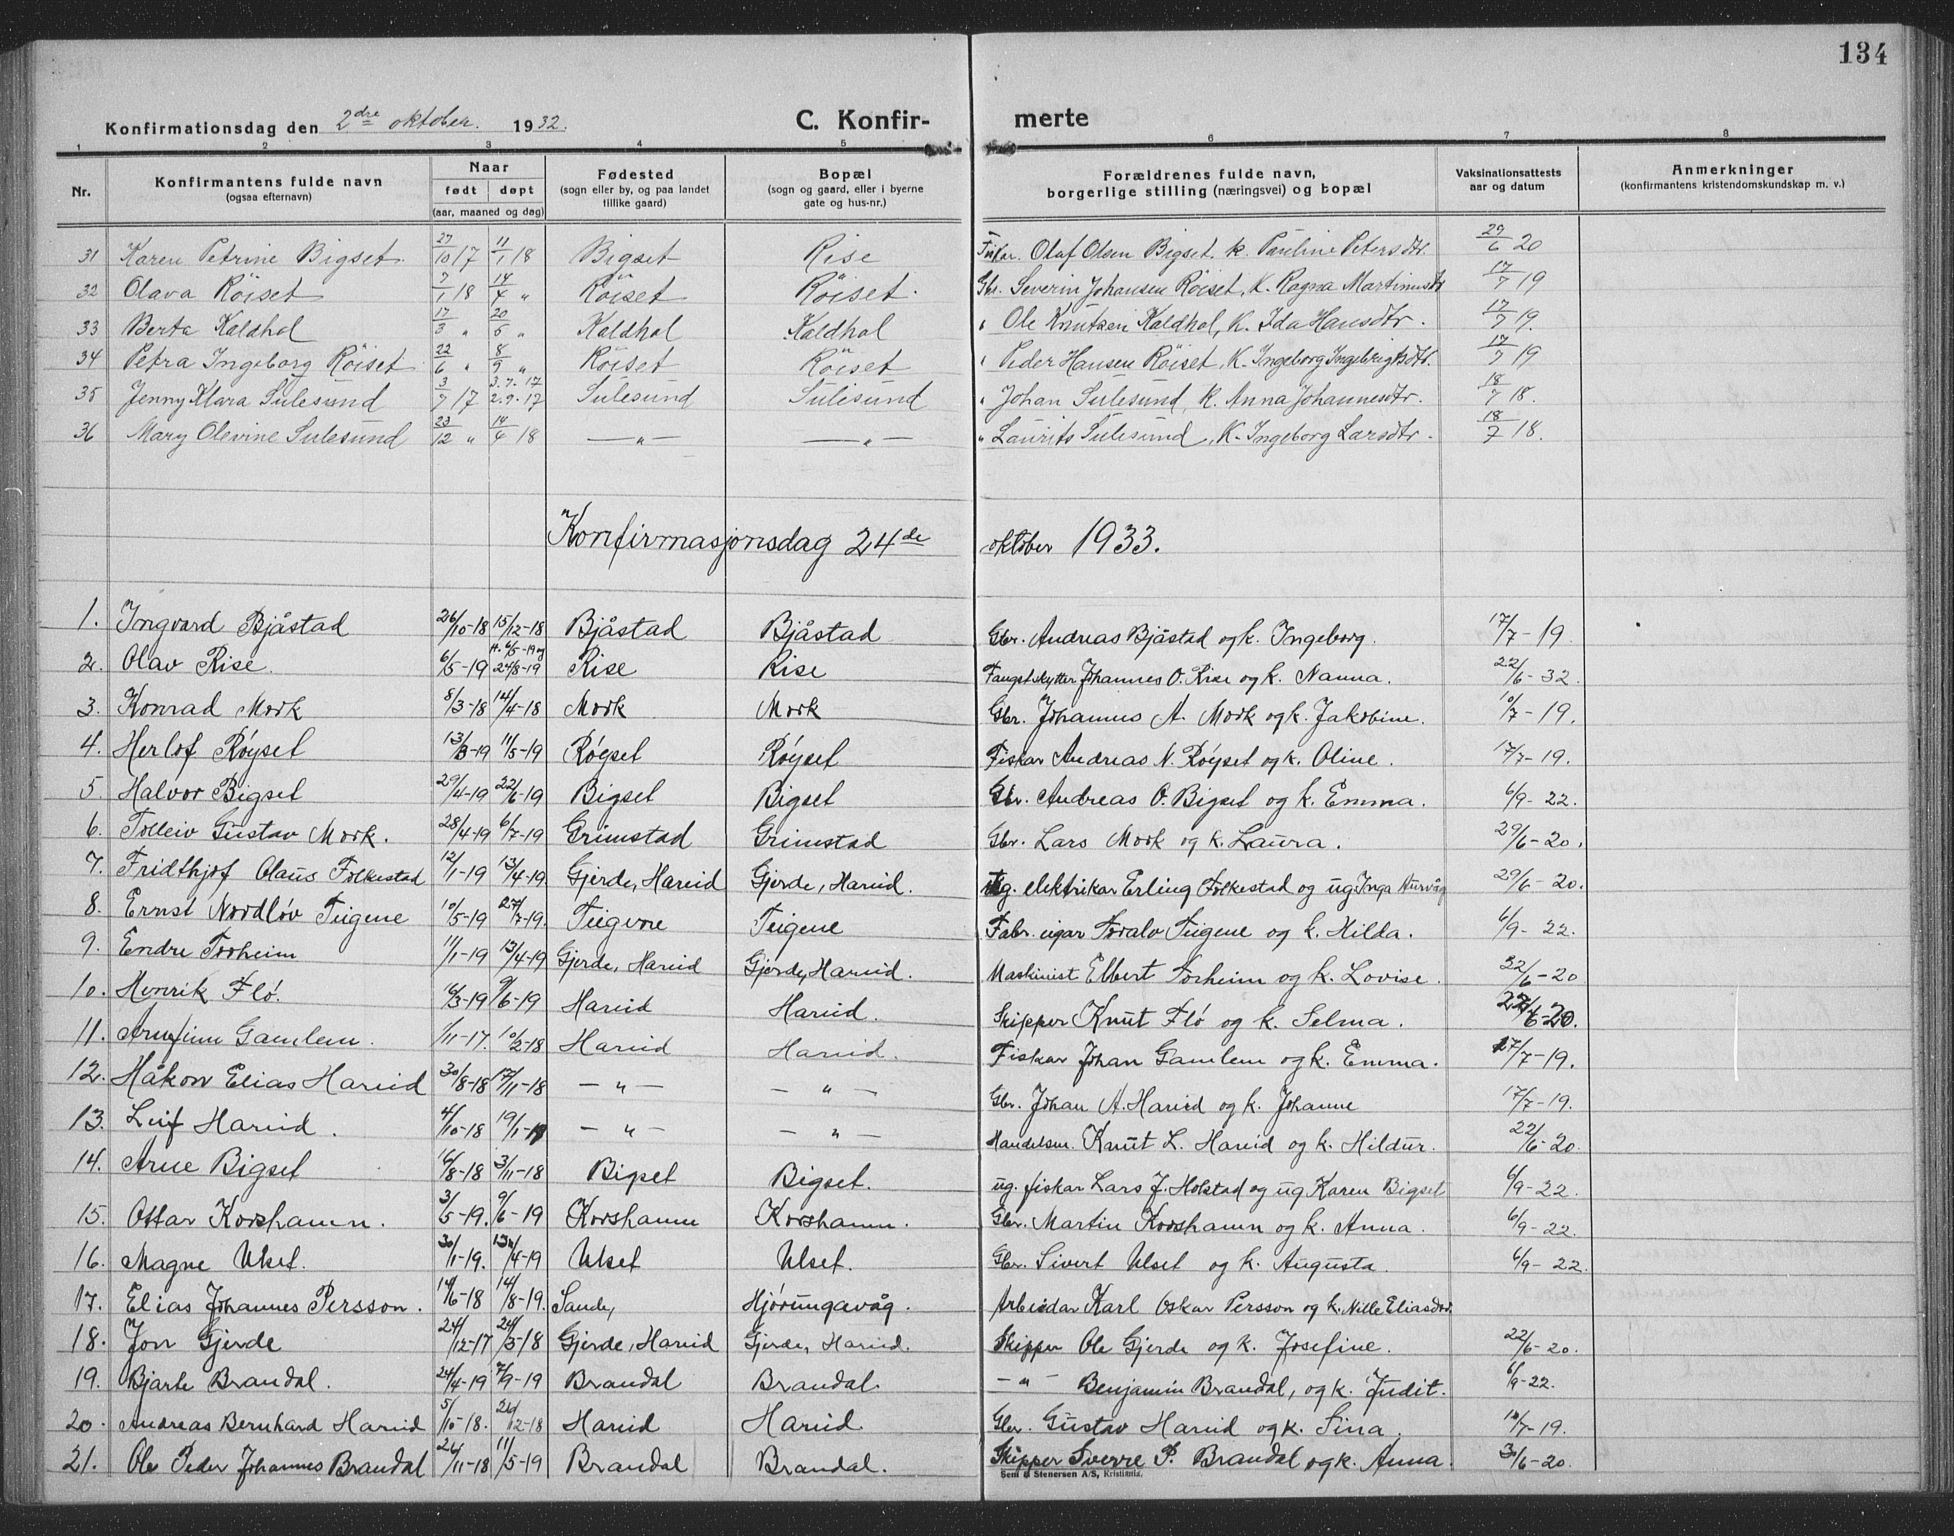 134
Konfirmationsdag den 2dre oktober. 1932. C. Konfir- merte
1 2 3 4 5 6 7 8
Nr. Konfirmantens fulde navn (ogsaa efternavn) Naar født døpt (aar, maaned og dag) Fødested (sogn eller by, og paa landet tillike gaard) Bopæl (sogn og gaard, eller i byerne gate og hus-nr.) Forældrenes fulde navn, borgerlige stilling (næringsvei) og bopæl Vaksinationsattests aar og datum Anmerkninger (konfirmantens kristendomskundskap m. v.)
31 Karen Petrine Bigset 27/10 17 11/1 18 Bigset Rise Fiskar. Olaf Olsen Bigset. k. Pauline Petersdtr. 29/6 20
32 Olava Röiset 7/1 18 14/4 „ Röiset Röiset. Gbr. Severin Johansen Röiset, K. Ragna Martinusdtr 17/7 19
33 Berta Kaldhol 17/3 „ 20/5 „ Kaldhol Kaldhol „ Ole Knutsen Kaldhol, K. Ida Hansdtr. 17/7 19.
34 Petra Ingeborg Röiset 22/6 „ 8/9 „ Röiset Röiset „ Peder Hansen Röiset, K. Ingeborg Ingebrigtsdtr. 17/7 19
35 Jenny Klara Sulesund 3/7 17 2.9.17 Sulesund Sulesund „ Johan Sulesund, K. Anna Johannesdtr. 18/7 18.
36 Mary Olevine Sulesund 23/12 „ 14/4 18 — „ — — „ — „ Laurits Sulesund, K. Ingeborg Larsdtr. 18/7 18.
Konfirmasjonsdag 24de oktober 1933.
1. Ingvard Bjåstad 26/10-18 15/12-18 Bjåstad Bjåstad Gbr. Andreas Bjåstad og k. Ingeborg. 17/7-19.
2. Olav Rise. 6/5-19 H. 6/5-19 og 24/8-19 Rise Rise Fangstskytter Johannes O. Rise og k. Nanna. 22/6-32.
3. Konrad Mork 8/3-18 14/4-18 Mork Mork Gbr. Johannes A. Mork og k. Jakobine. 10/7-19.
4. Herlof Røyset 13/3-19 11/5-19 Røyset Røyset Fiskar Andreas N. Røyset og k. Oline. 17/7-19.
5. Halvor Bigset 29/4-19 22/6-19 Bigset Bigset Gbr. Andreas O. Bigset og k. Emma. 6/9-22.
6. Tolleiv Gustav Mork. 28/4-19 6/7-19 Grimstad Grimstad Gbr. Lars Mork og k. Laura. 29/6-20.
7. Fridthjof Olaus Folkestad 12/1-19 13/4-19 Gjerde, Hareid Gjerde, Hareid. ug. elektrikar Erling Folkestad og ug. Inga Aurvåg 29/6-20.
8. Ernst Nordløv Teigene 10/5-19 27/7-19. Teigene Teigene Fabr. eigar Toralv Teigene og k. Hilda. 6/9-22.
9. Endre Torheim 11/1-19 13/4-19 Gjerde, Hareid Gjerde, Hareid. Maskinist Elbert Torheim og k. Lovise. 22/6-20
10. Henrik Flø. 16/3-19 9/6-19 Hareid Hareid. Skipper Knut Flø og k. Selma. 22/6-20.
11. Arnfinn Gamlem. 1/11-17. 10/2-18 Hareid Hareid. Fiskar Johan Gamlem og k. Emma. 17/7-19.
12. Håkon Elias Hareid 30/8-18 17/11-18 — „ — — „ — Gbr. Johan A. Hareid og k. Johanne 17/7-19.
13. Leif Hareid. 4/10-18 19/1-19 — „ — — „ — Handelsm. Knut L. Hareid og k. Hildur. 22/6-20.
14. Arne Bigset 16/8-18 3/11-18 Bigset Bigset. ug. fiskar Lars J. Holstad og ug Karen Bigset 6/9-22.
15. Ottar Korshamn. 3/5-19. 9/6-19 Korshamn Korshamn. Gbr. Martin Korshamn og k. Anna. 6/9-22.
16. Magne Ulset. 30/1-19. 13/4-19 Ulset Ulset. Gbr. Sivert Ulset og k. Augusta. 6/9-22.
17. Elias Johannes Persson. 14/6-18 14/8-19. Sande, Hjørungavåg. Arbeidar Karl Oskar Persson og k. Nille Eliasdtr.
18. Jon Gjerde 24/12-17 24/3-18 Gjerde, Hareid Gjerde, Hareid. Skipper Ole Gjerde og k. Josefine. 22/6-20.
19. Bjarte Brandal. 24/4-19 7/9-19 Brandal Brandal. — „ — Benjamin Brandal, og k. Judit. 6/9-22.
20. Andreas Bernhard Hareid 5/10-18. 26/12-18 Hareid Hareid Gbr. Gustav Hareid og k. Sina. 10/7-19.
21. Ole Peder Johannes Brandal 26/11-18 11/5-19 Brandal Brandal. Skipper Sverre P. Brandal og k. Anna. 30/6-20.
Sem & Stenersen A/S, Kristiania.